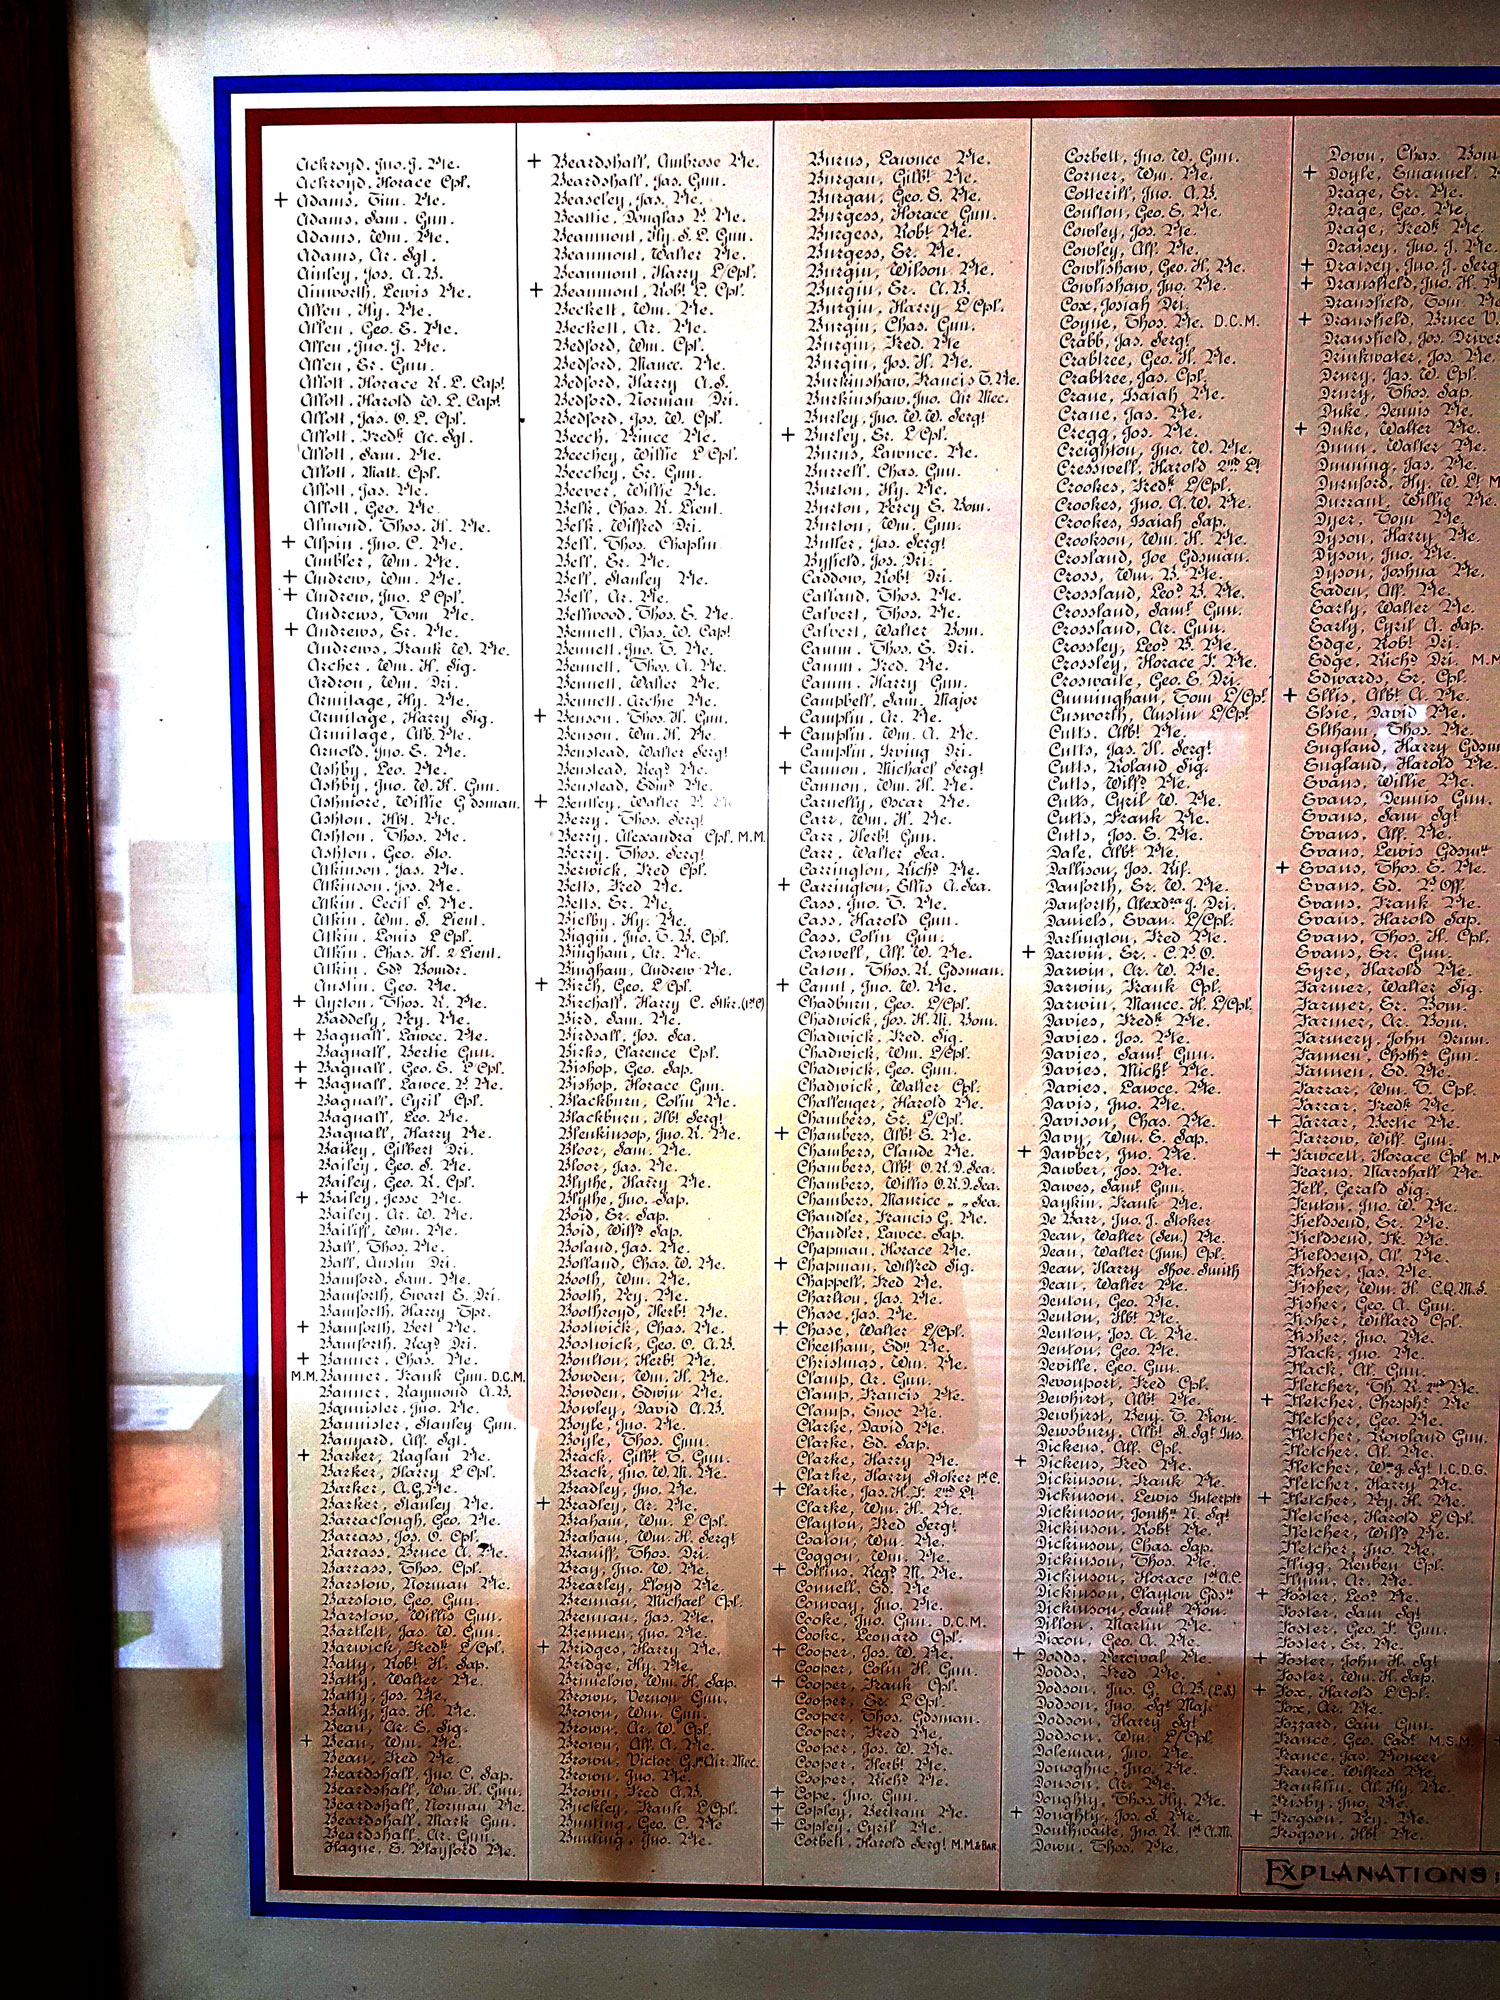 Ackroyd, Jno. J. Pte.
Ackroyd, Horace Cpl.
+ Adams, Tim. Pte.
Adams, Sam. Gun.
Adams, Wm. Pte.
Adams, Ar. Sgt.
Ainley, Jos. A.B.
Ainworth, Lewis Pte.
Allen, Hy. Pte.
Allen, Geo. E. Pte.
Allen, Jno. J. Pte.
Allen, Er. Gun.
Allott, Horace R. L. Cap!
Allott, Harold W. L. Cap!
Allott, Jas. O. L. Cpl.
Allott, Fredk Ac. Sgt.
Allott, Sam. Pte.
Allott, Matt. Cpl.
Allott, Jas. Pte.
Allott, Geo. Pte.
Almond, Thos. H. Pte.
+ Alpin, Jno. C. Pte.
Ambler, Wm. Pte.
+ Andrew, Wm. Pte.
+ Andrew, Jno. L Cpl.
Andrews, Tom Pte.
+ Andrews, Er. Pte.
Andrews, Frank W. Pte.
Archer, Wm. H. Sig.
Ardron, Wm. Dri.
Armitage, Hy. Pte.
Armitage, Harry Sig.
Armitage, Alb. Pte.
Arnold, Jno. E. Pte.
Ashby, Leo. Pte.
Ashby, Jno. W. H. Gun.
Ashmore, Willie Gdsman.
Ashton, Hbt. Pte.
Ashton, Thos. Pte.
Ashton, Geo. Sto.
Atkinson, Jas. Pte.
Atkinson, Jos. Pte.
Atkin, Cecil S. Pte.
Atkin, Wm. S. Lieut.
Atkin, Louis L Cpl.
Atkin, Chas. H. 2 Lieut.
Atkin, Edd Bomdr.
Austin, Geo. Pte.
+ Ayrton, Thos. R. Pte.
Baddely, Pey. Pte.
+ Bagnall, Lawce. Pte.
Bagnall, Bertie Gun.
+ Bagnall, Geo. E. L Cpl.
+ Bagnall, Lawce. P. Pte.
Bagnall, Cyril Cpl.
Bagnall, Leo. Pte.
Bagnall, Harry Pte.
Bailey, Gilbert Dri.
Bailey, Geo. S. Pte.
Bailey, Geo. R. Cpl.
+ Bailey, Jesse Pte.
Bailey, Ar. W. Pte.
Bailiff, Wm. Pte.
Ball, Thos. Pte.
Ball, Austin Dri.
Bamford, Sam. Pte.
Bamforth, Ewart E. Dri.
Bamforth, Harry Tpr.
+ Bamforth, Bert Pte.
Bamforth, Regd Dri.
+ Banner, Chas. Pte.
M.M. Banner, Frank Gun. D.C.M.
Banner, Raymond A.B.
Bannister, Jno. Pte.
Bannister, Stanley Gun.
Banyard, Alf. Sgt.
+ Barker, Raglan Pte.
Barker, Harry L Cpl.
Barker, A.G. Pte.
Barker, Stanley Pte.
Barraclough, Geo. Pte.
Barrass, Jos. O. Cpl.
Barrass, Bruce A. Pte.
Barrass, Thos. Cpl.
Barstow, Norman Pte.
Barstow, Geo. Gun.
Barstow, Willis Gun.
Bartlett, Jas. W. Gun.
Barwick, Fredk L Cpl.
Batty, Robt H. Sap.
Batty, Walter Pte.
Batty, Jos. Pte.
Batty, Jas. H. Pte.
Bean, Ar. E. Sig.
+ Bean, Wm. Pte.
Bean, Fred Pte.
Beardshall, Jno. C. Sap.
Beardshall, Wm. H. Gun.
Beardshall, Norman Pte.
Beardshall, Mark Gun.
Beardshall, Ar. Gun.
Hague, E. Playford Pte.
+ Beardshall, Ambrose Pte.
Beardshall, Jas. Gun.
Beaseley, Jas. Pte.
Beattie, Douglas P. Pte.
Beaumont, Hy. S. L. Gun.
Beaumont, Walter Pte.
Beaumont, Harry L Cpl.
+ Beaumont, Robt L. Cpl.
Beckett, Wm. Pte.
Beckett, Ar. Pte.
Bedford, Wm. Cpl.
Bedford, Mance. Pte.
Bedford, Harry A.S.
Bedford, Norman Dri.
Bedford, Jos. W. Cpl.
Beech, Prince Pte.
Beechey, Willie L Cpl.
Beechey, Er. Gun.
Beever, Willie Pte.
Belk, Chas. R. Lieut.
Belk, Wilfred Dri.
Bell, Thos. Chaplin
Bell, Er. Pte.
Bell, Stanley Pte.
Bell, Ar. Pte.
Bellwood, Thos. E. Pte.
Bennett, Chas. W. Cap!
Bennett, Jno. T. Pte.
Bennett, Thos. A. Pte.
Bennett, Walter Pte.
Bennett, Archie Pte.
+ Benson, Thos. H. Gun.
Benson, Wm. H. Pte.
Benstead, Walter Serg!
Benstead, Regd Pte.
Benstead, Edmd Pte.
+ Bentley, Walter P. Pte
Berry, Thos. Serg!
Berry, Alexandra Cpl. M.M.
Berry, Thos. Serg!
Berwick, Fred Cpl.
Betts, Fred Pte.
Betts, Er. Pte.
Bielby, Hy. Pte.
Biggin, Jno. T. B. Cpl.
Bingham, Ar. Pte.
Bingham, Andrew Pte.
+ Birch, Geo. L Cpl.
Birchall, Harry C. Stkr. (1st C)
Bird, Sam. Pte.
Birdsall, Jos. Sea.
Birks, Clarence Cpl.
Bishop, Geo. Sap.
Bishop, Horace Gun.
Blackburn, Colin Pte.
Blackburn, Hbt Serg!
Blenkinsop, Jno. R. Pte.
Bloor, Sam. Pte.
Bloor, Jas. Pte.
Blythe, Harry Pte.
Blythe, Jno. Sap.
Boid, Er. Sap.
Boid, Willd Sap.
Boland, Jas. Pte.
Bolland, Chas. W. Pte.
Booth, Wm. Pte.
Booth, Pey. Pte.
Boothroyd, Herbt Pte.
Bostwick, Chas. Pte.
Bostwick, Geo. O. A.B.
Boulton, Herbt Pte.
Bowden, Wm. H. Pte.
Bowden, Edwin Pte.
Bowley, David A.B.
Boyle, Jno. Pte.
Boyle, Thos. Gun.
Brack, Gilbt T. Gun.
Brack, Jno. W. M. Pte.
Bradley, Jno. Pte.
+ Bradley, Ar. Pte.
Braham, Wm. L Cpl.
Braham, Wm. H. Serg!
Braniff, Thos. Dri.
Bray, Jno. W. Pte.
Brearley, Lloyd Pte.
Brennan, Michael Cpl.
Brennan, Jas. Pte.
Brennen, Jno. Pte.
+ Bridges, Harry Pte.
Bridge, Hy. Pte.
Brimelow, Wm. H. Sap.
Brown, Vernon Gun.
Brown, Wm. Gun.
Brown, Ar. W. Cpl.
Brown, Alf. A. Pte.
Brown, Victor G. 1st Air. Mec.
Brown, Jno. Pte.
Brown, Fred A.B.
Buckley, Frank L Cpl.
Bunting, Geo. C. Pte
Bunting, Jno. Pte.
Burns, Lawnce Pte.
Burgan, Gilbt Pte.
Burgan, Geo. E. Pte.
Burgess, Horace Gun.
Burgess, Robt Pte.
Burgess, Er. Pte.
Burgin, Wilson Pte.
Burgin, Er. A.B.
Burgin, Harry L Cpl.
Burgin, Chas. Gun.
Burgin, Fred. Pte
Burgin, Jos. H. Pte.
Burkinshaw, Francis T. Pte.
Burkinshaw, Jno. Air Mec.
Burley, Jno. W. W. Serg!
+ Burley, Er. L Cpl.
Burns, Lawnce. Pte.
Burrell, Chas. Gun.
Burton, Hy. Pte.
Burton, Percy E. Bom.
Burton, Wm. Gun.
Butler, Jas. Serg!
Byfield, Jos. Dri.
Caddow, Robt Dri.
Calland, Thos. Pte.
Calvert, Thos. Pte.
Calvert, Walter Bom.
Camm, Thos. E. Dri.
Camm, Fred. Pte.
Camm, Harry Gun.
Campbell, Sam. Major
Camplin, Ar. Pte.
+ Camplin, Wm. A. Pte.
Camplin, Irving Dri.
+ Cannon, Michael Serg!
Cannon, Wm. H. Pte.
Carnelly, Oscar Pte.
Carr, Wm. H. Pte.
Carr, Herbt Gun.
Carr, Walter Sea.
Carrington, Richd Pte.
+ Carrington, Ellis A. Sea.
Cass, Jno. T. Pte.
Cass, Harold Gun.
Cass, Colin Gun.
Caswell, Alf. W. Pte.
Caton, Thos. R. Gdsman.
+ Caunt, Jno. W. Pte.
Chadburn, Geo. L/Cpl.
Chadwick, Jos. H. M. Bom.
Chadwick, Fred. Sig.
Chadwick, Wm. L/Cpl.
Chadwick, Geo. Gun.
Chadwick, Walter Cpl.
Challenger, Harold Pte.
Chambers, Er. L/Cpl.
+ Chambers, Albt E. Pte.
Chambers, Claude Pte.
Chambers, Albt O.R.D. Sea.
Chambers, Willis O.R.D. Sea.
Chambers, Maurice " " Sea.
Chandler, Francis G. Pte.
Chandler, Lawce. Sap.
Chapman, Horace Pte.
+ Chapman, Wilfred Sig.
Chappell, Fred Pte.
Charlton, Jas. Pte.
Chase, Jas. Pte.
+ Chase, Walter L/Cpl.
Cheetham, Edn Pte.
Christmas, Wm. Pte.
Clamp, Ar. Gun.
Clamp, Francis Pte.
Clamp, Enoc Pte.
Clarke, David Pte.
Clarke, Ed. Sap.
Clarke, Harry Pte.
Clarke, Harry Stoker 1st C.
+ Clarke, Jas. H. F. 2nd Lt
Clarke, Wm. H. Pte.
Clayton, Fred Serg!
Coaton, Wm. Pte.
Coggon, Wm. Pte.
+ Collins, Regd M. Pte.
Connell, Ed. Pte
Conway, Jno. Pte.
Cooke, Jno. Gun. D.C.M.
Cooke, Leonard Cpl.
+ Cooper, Jos. W. Pte.
Cooper, Colin H. Gun.
+ Cooper, Frank Cpl.
Cooper, Er. L Cpl.
Cooper, Thos. Gdsman.
Cooper, Fred Pte.
Cooper, Jos. W. Pte.
Cooper, Herbt Pte.
Cooper, Richd Pte.
+ Cope, Jno. Gun.
+ Copley, Bertram Pte.
+ Copley, Cyril Pte.
Corbett, Harold Serg! M.M. & Bar
Corbett, Jno. W. Gun.
Corner, Wm. Pte.
Cotterill, Jno. A.B.
Coulton, Geo. E. Pte.
Cowley, Jos. Pte.
Cowley, Alf. Pte.
Cowlishaw, Geo. H. Pte.
Cowlishaw, Jno. Pte.
Cox, Josiah Dri.
Coyne, Thos. Pte. D.C.M.
Crabb, Jas. Serg!
Crabtree, Geo. H. Pte.
Crabtree, Jas. Cpl.
Crane, Isaiah Pte.
Crane, Jas. Pte.
Cregg, Jos. Pte.
Creighton, Jno. W. Pte.
Cresswell, Harold 2nd Lt
Crookes, Fredk L/Cpl.
Crookes, Jno. A. W. Pte.
Crookes, Isaiah Sap.
Crookson, Wm. H. Pte.
Crosland, Joe Gdsman.
Cross, Wm. B. Pte.
Crossland, Leod B. Pte.
Crossland, Saml Gun.
Crossland, Ar. Gun.
Crossley, Leod B. Pte.
Crossley, Horace F. Pte.
Crosswaite, Geo. E. Dri.
Cunningham, Tom L/Cpl
Cusworth, Austin L/Cpl
Cutts, Albt Pte.
Cutts, Jas. H. Serg!
Cutts, Roland Sig.
Cutts, Willd Pte.
Cutts, Cyril W. Pte.
Cutts, Frank Pte.
Cutts, Jos. E. Pte.
Dale, Albt Pte.
Dallison, Jos. Rif.
Danforth, Er. W. Pte.
Danforth, Alexdra J. Dri.
Daniels, Evan. L/Cpl.
Darlington, Fred Pte.
+ Darwin, Er. C.P.O.
Darwin, Ar. W. Pte.
Darwin, Frank Cpl.
Darwin, Mance. H. L/Cpl.
Davies, Fredk Pte.
Davies, Jos. Pte.
Davies, Saml Gun.
Davies, Michl Pte.
Davies, Lawce. Pte.
Davis, Jno. Pte.
Davison, Chas. Pte.
Davy, Wm. E. Sap.
+ Dawber, Jno. Pte.
Dawber, Jos. Pte.
Dawes, Saml Gun.
Daykin, Frank Pte.
De Barr, Jno. J. Stoker
Dean, Walter (Sen.) Pte.
Dean, Walter (Jun.) Cpl.
Dean, Harry Shoe. Smith
Dean, Walter Pte.
Denton, Geo. Pte.
Denton, Hbt Pte.
Denton, Jos. A. Pte.
Denton, Geo. Pte.
Deville, Geo. Gun.
Devonport, Fred Cpl.
Dewhirst, Albt Pte.
Dewhirst, Benj. T. Pion.
Dewsbury, Albt S. Sgt Ins.
Dickens, Alf. Cpl.
+ Dickens, Fred Pte.
Dickinson, Frank Pte.
Dickinson, Lewis Interptr
Dickinson, Jonthn N. Sgt
Dickinson, Robt Pte.
Dickinson, Chas. Sap.
Dickinson, Thos. Pte.
Dickinson, Horace 1st A.C.
Dickinson, Clayton Gdsn
Dickinson, Saml Pion.
Dillon, Martin Pte.
Dixon, Geo. A. Pte.
+ Dodds, Percival Pte.
Dodds, Fred Pte.
Dodson, Jno. G. A.B. (L.S)
Dodson, Jno. Sgt Maj.
Dodson, Harry Sgt
Dodson, Wm. L/Cpl.
Doleman, Jno. Pte.
Donoghue, Jno. Pte.
Donson, Ar. Pte.
Doughty, Thos. Hy. Pte.
+ Doughty, Jos. S. Pte.
Douthwaite, Jno. R. 1st A.M.
Down, Thos. Pte.
Down, Chas. Bom
+ Doyle, Emanuel
Drage, Er. Pte.
Drage, Geo. Pte.
Drage, Fredk Pte.
Draisey, Jno. J. Pte.
+ Draisey, Jno. J. Serg
+ Dransfield, Jno. H.
Dransfield, Tom. Pte
+ Dransfield, Bruce
Dransfield, Jos. Driver
Drinkwater, Jos. Pte.
Drury, Jas. W. Cpl.
Drury, Thos. Sap.
Duke, Dennis Pte.
+ Duke, Walter Pte.
Dunn, Walter Pte.
Dunning, Jas. Pte.
Durnford, Hy. W. Lt M
Durrant, Willie Pte.
Dyer, Tom Pte.
Dyson, Harry Pte.
Dyson, Jno. Pte.
Dyson, Joshua Pte.
Eaden, Alf. Pte.
Early, Walter Pte.
Early, Cyril A. Sap.
Edge, Robt Dri.
Edge, Richd Dri. M.M
Edwards, Er. Cpl.
+ Ellis, Albt A. Pte.
Elsie, David Pte.
Eltham, Thos. Pte.
England, Harry Gdsm
England, Harold Pte.
Evans, Willie Pte.
Evans, Dennis Gun.
Evans, Sam Sgt
Evans, Alf. Pte.
Evans, Lewis Gdsmn
+ Evans, Thos. E. Pte.
Evans, Ed. P. Off.
Evans, Frank Pte.
Evans, Harold Sap.
Evans, Thos. H. Cpl.
Evans, Er. Gun.
Eyre, Harold Pte.
Farmer, Walter Sig.
Farmer, Er. Bom.
Farmer, Ar. Bom.
Farmery, John Drum.
Fannen, Chsthr Gun.
Fannen, Ed. Pte.
Farrar, Wm. T. Cpl.
Farrar, Fredk Pte.
+ Farrar, Bertie Pte.
Farrow, Will. Gun.
+ Fawcett, Horace Cpl M.M
Fearns, Marshall Pte.
Fell, Gerald Sig.
Fenton, Jno. W. Pte.
Fieldsend, Er. Pte.
Fieldsend, Fk. Pte.
Fieldsend, Al. Pte.
Fisher, Jas. Pte.
Fisher, Wm. H. C.Q.M.S.
Fisher, Geo. A. Gun.
Fisher, Willard Cpl.
Fisher, Jno. Pte.
Flack, Jno. Pte.
Flack, Al. Gun.
Fletcher, Th. R. 2nd Pte.
+ Fletcher, Chrsphr Pte.
Fletcher, Geo. Pte.
Fletcher, Rowland Gun.
Fletcher, Al. Pte.
Fletcher, Wm J. Sgt I.C.D.G.
Fletcher, Harry Pte.
+ Fletcher, Pey. H. Pte.
Fletcher, Harold L Cpl.
Fletcher, Willd Pte.
Fletcher, Jno. Pte.
Fligg, Reuben Cpl.
Flynn, Ar. Pte.
+ Foster, Leod Pte.
Foster, Sam Sgt
Foster, Geo. F. Gun.
Foster, Er. Pte.
+ Foster, John H. Sgt
Foster, Wm. H. Sap.
+ Fox, Harold L Cpl.
Fox, Ar. Pte.
Fozzard, Cain Gun.
France, Geo. Cadt M.S.M.
France, Jas. Pioneer
France, Wilfred Pte.
Franklin, Al. Hy. Pte.
Frisby, Jno. Pte.
+ Frogson, Pey. Pte.
Frogson, Hbt Pte.
EXPLANATIONS